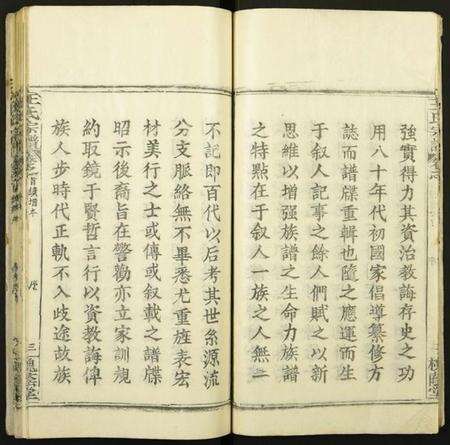 強實得力其資治教誨存史之功
用八十年代初國家倡導纂修方
誌而譜牒重輯也隨之應運而生
于叙人記事之餘人們賦之以新
思維以增强族譜之生命力族譜
之特點在于叙人一族之人無一
不記即百代以后考其世系源流
分支脈絡無不畢悉尤重旌表宏
材美行之士或傳或叙載之譜牒
昭示後裔旨在警勸亦立家訓規
約取鏡于賢哲言行以資教誨俾
族人步時代正軌不入歧途故族
王氏宗譜卷之首
三槐堂